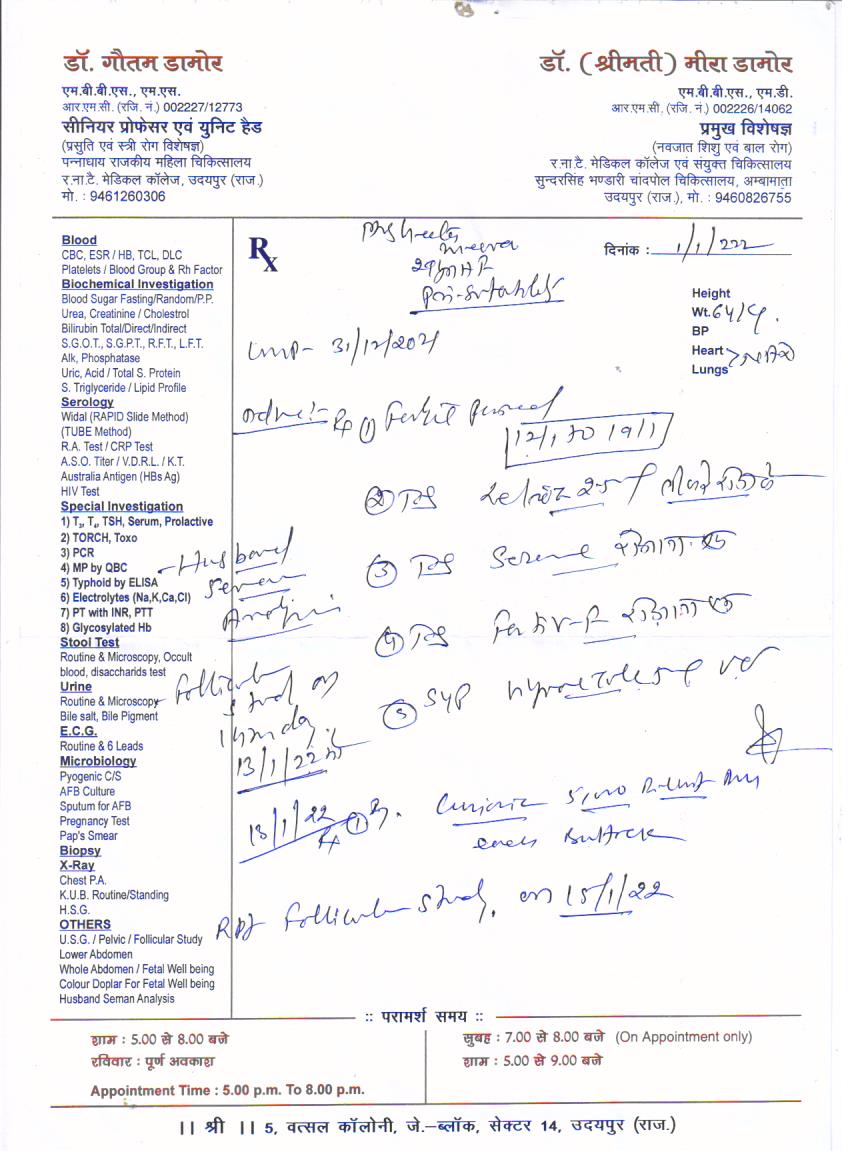 डॉ. गौतम डामोर
एम.बी.बी.एस., एम.एस.
आर.एम.सी. (रजि. नं.) 002227/12773
सीनियर प्रोफेसर एवं युनिट हैड
(प्रसुति एवं स्त्री रोग विशेषज्ञ)
पन्नाधाय राजकीय महिला चिकित्सालय
र.ना.टै. मेडिकल कॉलेज, उदयपुर (राज.)
मो. : 9461260306
डॉ. (श्रीमती) मीरा डामोर
एम.बी.बी.एस., एम.डी.
आर.एम.सी. (रजि. नं.) 002226/14062
प्रमुख विशेषज्ञ
(नवजात शिशु एवं बाल रोग)
र.ना.टै. मेडिकल कॉलेज एवं संयुक्त चिकित्सालय
सुन्दरसिंह भण्डारी चांदपोल चिकित्सालय, अम्बामाता
उदयपुर (राज.), मो. : 9460826755
Blood
CBC, ESR / HB, TCL, DLC
Platelets / Blood Group & Rh Factor
Biochemical Investigation
Blood Sugar Fasting/Random/P.P.
Urea, Creatinine / Cholestrol
Bilirubin Total/Direct/Indirect
S.G.O.T., S.G.P.T., R.F.T., L.F.T.
Alk, Phosphatase
Uric, Acid / Total S. Protein
S. Triglyceride / Lipid Profile
Serology
Widal (RAPID Slide Method)
(TUBE Method)
R.A. Test / CRP Test
A.S.O. Titer / V.D.R.L. / K.T.
Australia Antigen (HBs Ag)
HIV Test
Special Investigation
1) T₃, T₄, TSH, Serum, Prolactive
2) TORCH, Toxo
3) PCR
4) MP by QBC
5) Typhoid by ELISA
6) Electrolytes (Na,K,Ca,Cl)
7) PT with INR, PTT
8) Glycosylated Hb
Stool Test
Routine & Microscopy, Occult
blood, disaccharids test
Urine
Routine & Microscopy
Bile salt, Bile Pigment
E.C.G.
Routine & 6 Leads
Microbiology
Pyogenic C/S
AFB Culture
Sputum for AFB
Pregnancy Test
Pap's Smear
Biopsy
X-Ray
Chest P.A.
K.U.B. Routine/Standing
H.S.G.
OTHERS
U.S.G. / Pelvic / Follicular Study
Lower Abdomen
Whole Abdomen / Fetal Well being
Colour Doplar For Fetal Well being
Husband Seman Analysis
Rx
दिनांक : 1/1/222
Height
Wt. 64
BP
Heart
Lungs
LMP- 31/12/2021
Rx ① Fertile period
12/1 to 19/1
②
③
④
⑤ Syp
Husband
Semen
Follicular
Study on
13/1/22
13/1/22 Rx ①
5,000
each Buttock
Rpt Follicular Study, on 15/1/22
:: परामर्श समय ::
शाम : 5.00 से 8.00 बजे
रविवार : पूर्ण अवकाश
Appointment Time : 5.00 p.m. To 8.00 p.m.
सुबह : 7.00 से 8.00 बजे (On Appointment only)
शाम : 5.00 से 9.00 बजे
|| श्री || 5, वत्सल कॉलोनी, जे.–ब्लॉक, सेक्टर 14, उदयपुर (राज.)